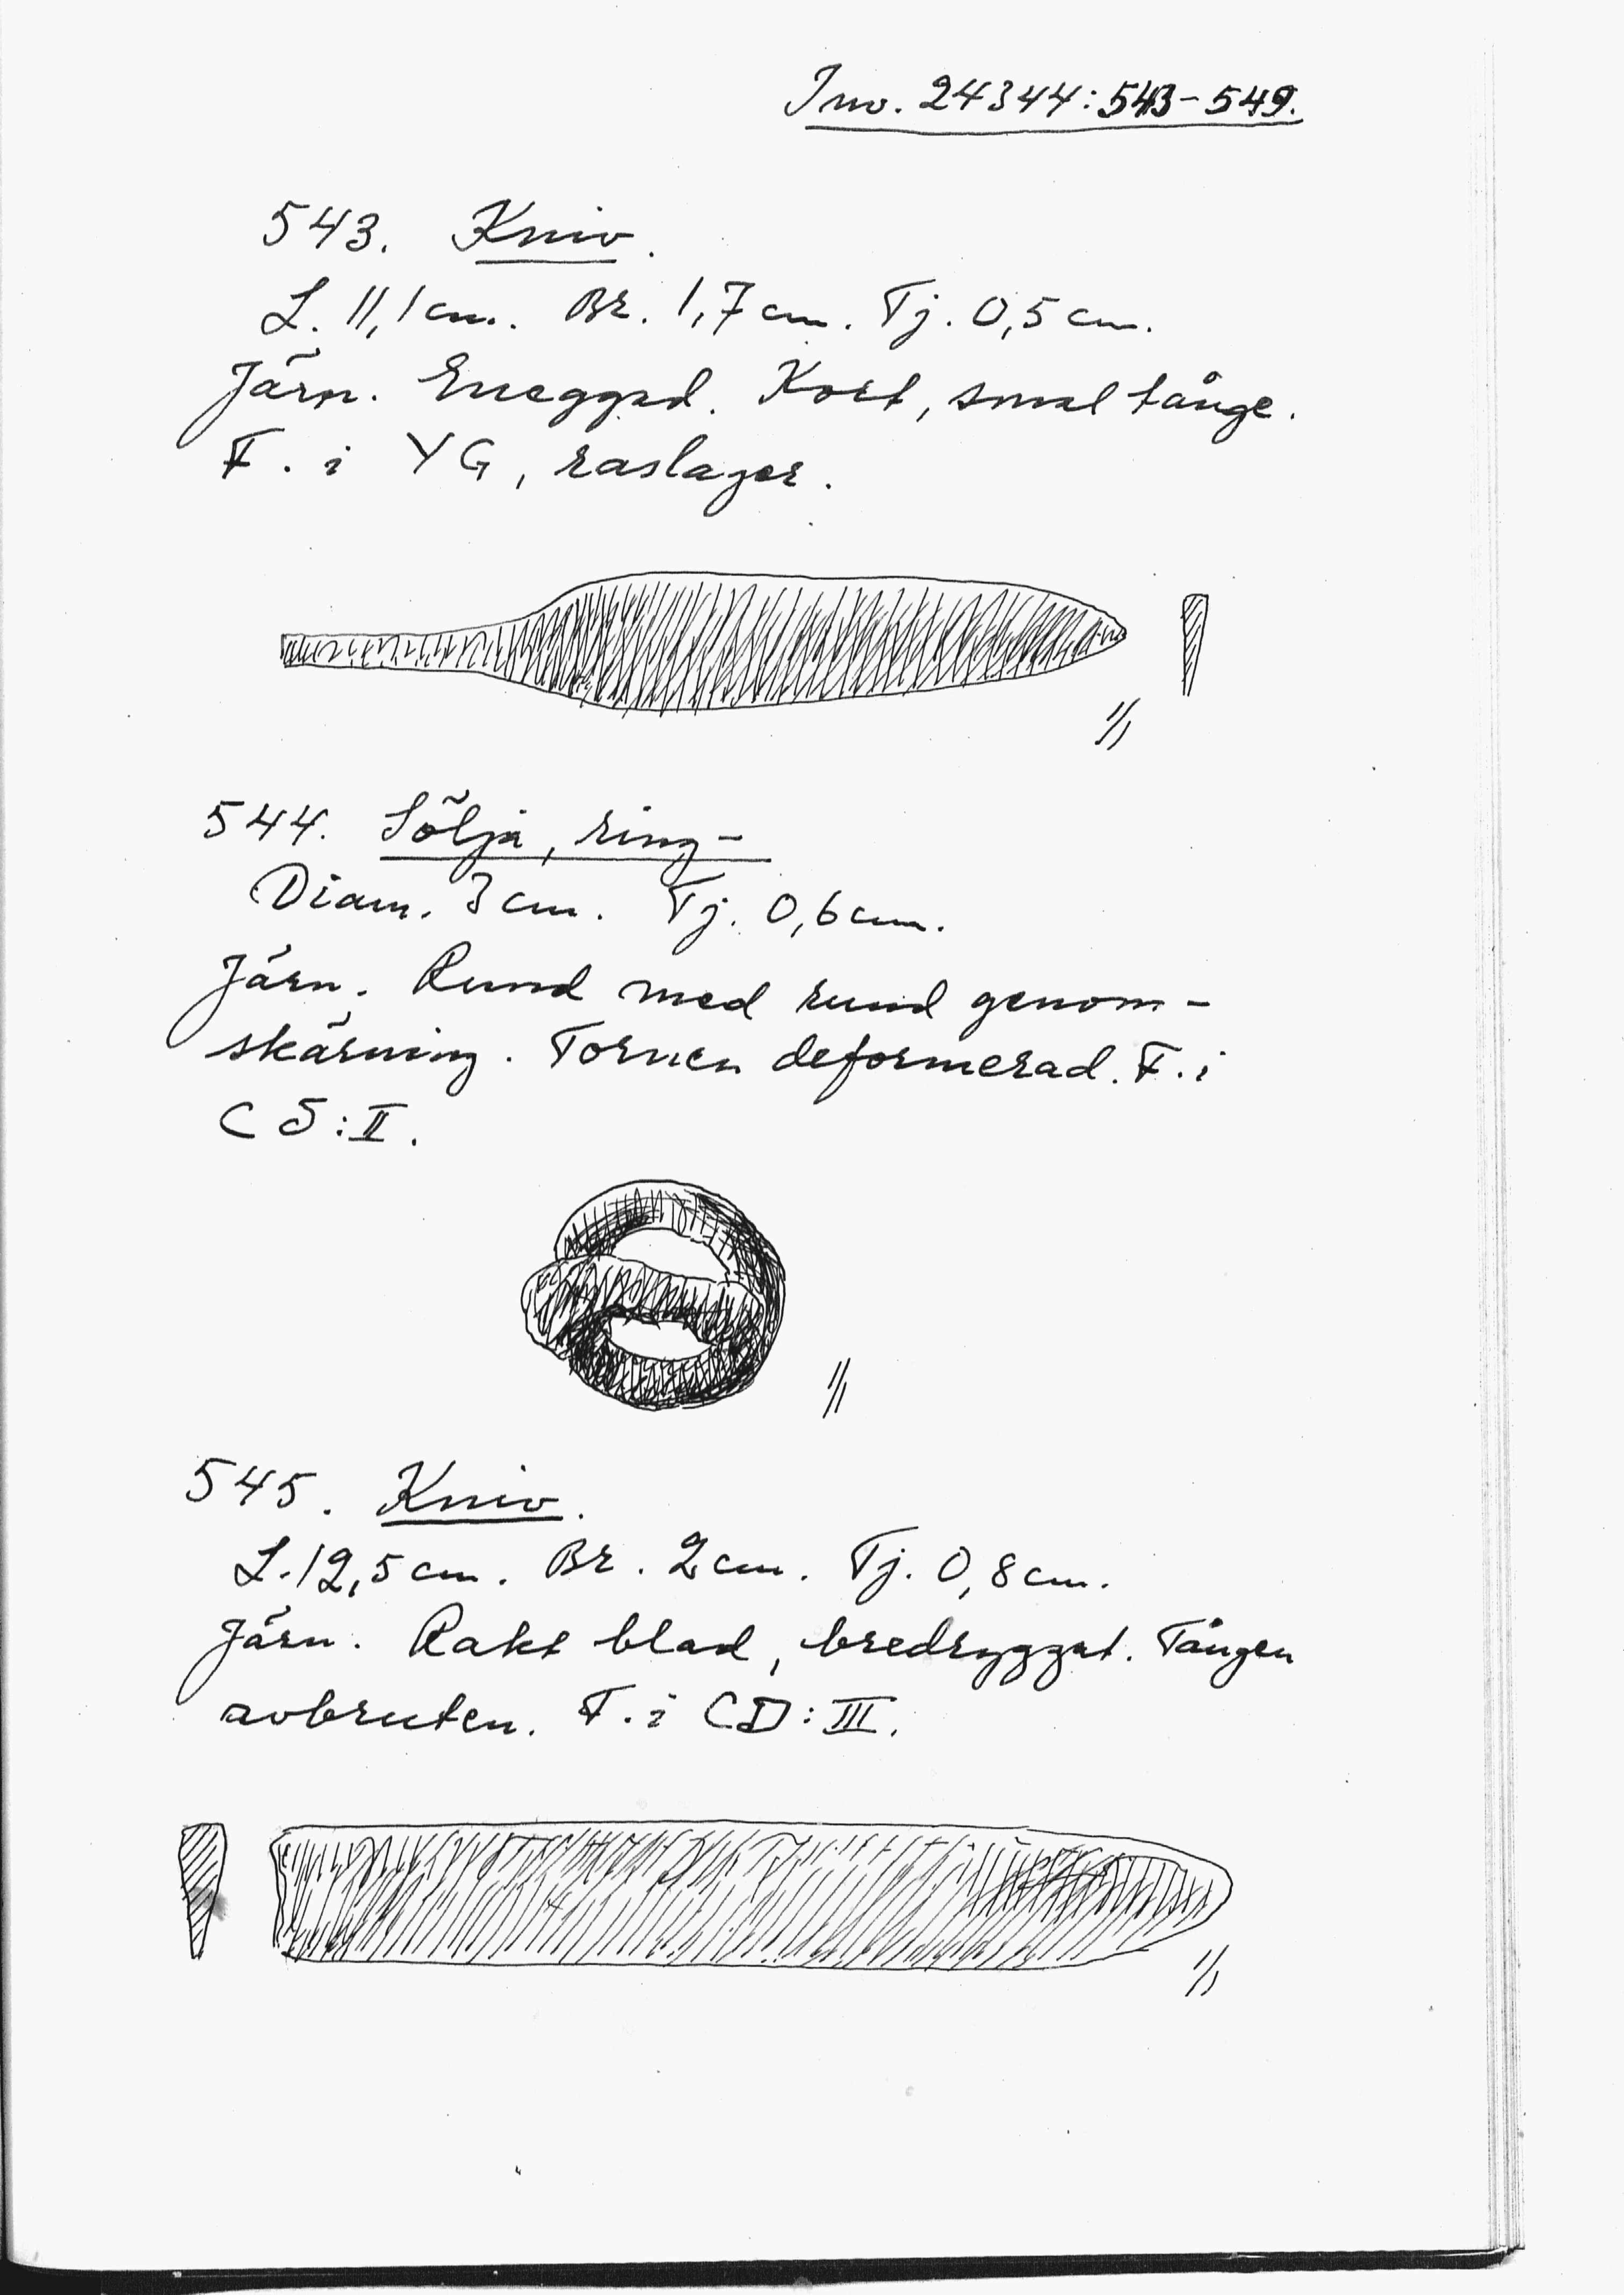 Inv. 24344:543-549.
543. Kniv.
L. 11,1 cm. Br. 1,7 cm. Tj. 0,5 cm.
Järn. Eneggad. Kort, smal tånge.
F. i YG, raslager.
1/1
544. Sölja, ring-
Diam. 3 cm. Tj. 0,6 cm.
Järn. Rund med rund genom-
skärning. Tornen deformerad. F. i
C5:II.
1/1
545. Kniv.
L. 12,5 cm. Br. 2 cm. Tj. 0,8 cm.
Järn. Rakt blad, bredryggat. Tången
avbruten. F. i CD:III.
1/1